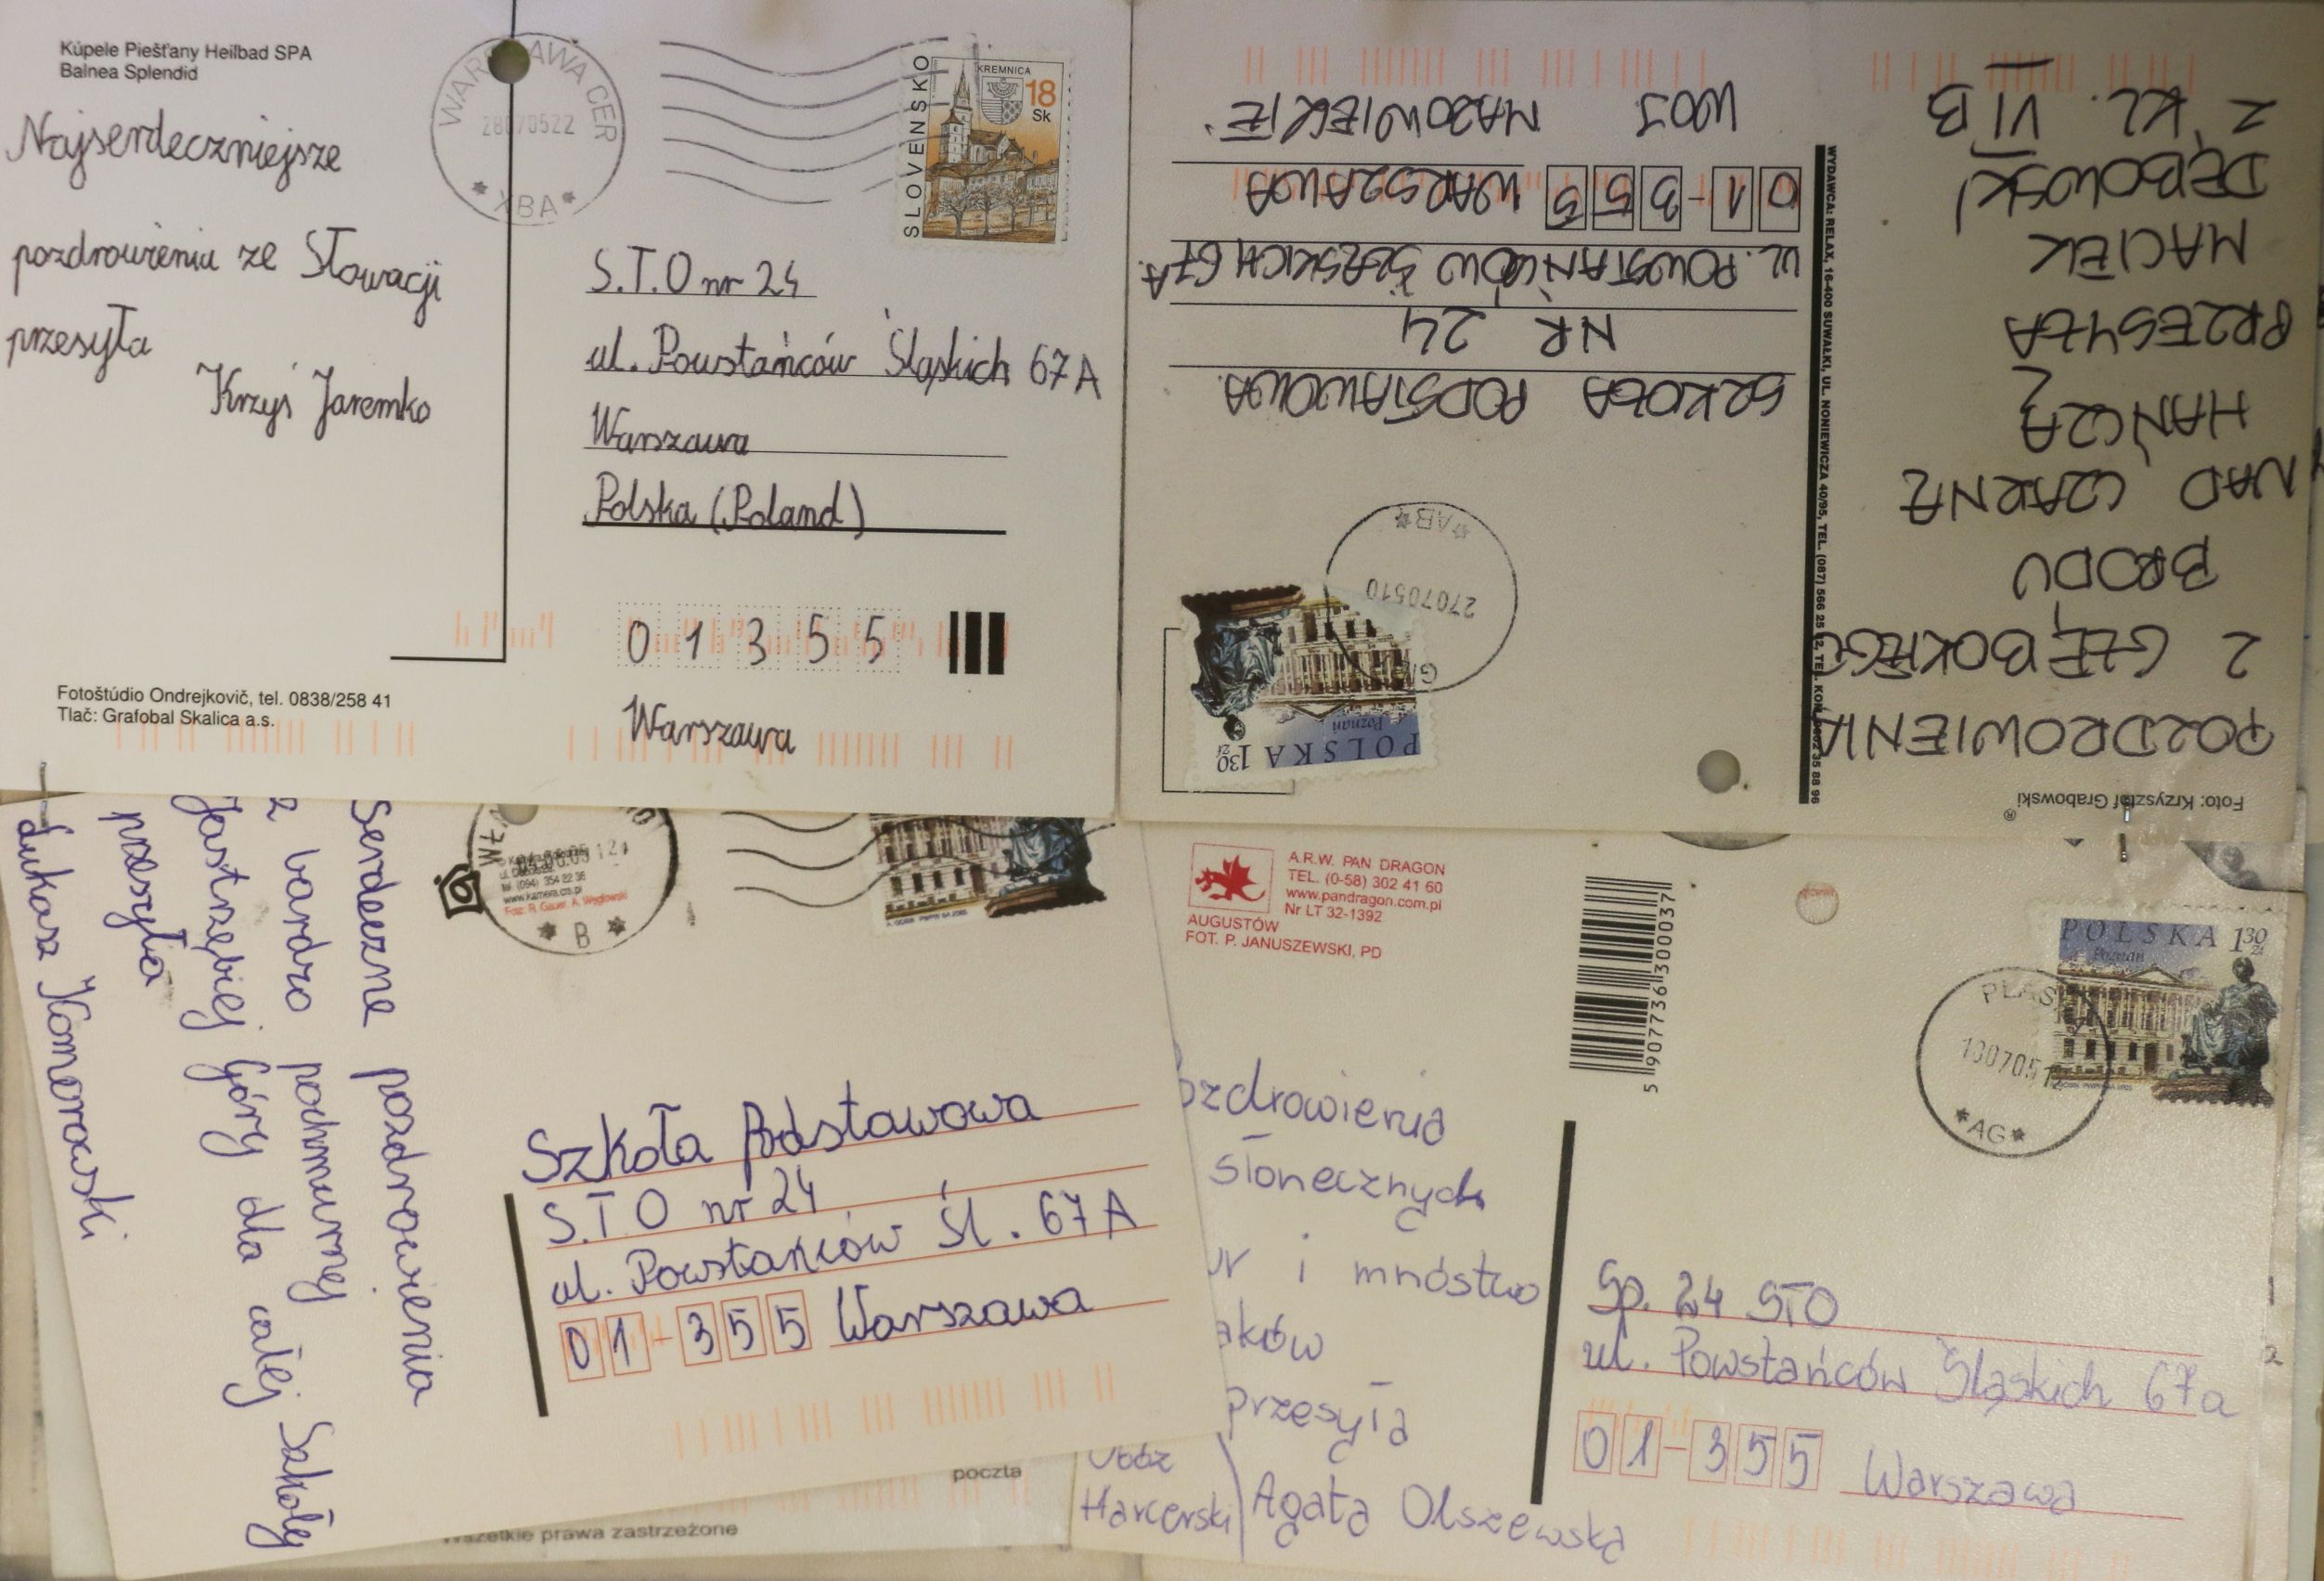 Kúpele Piešťany Heilbad SPA
Balnea Splendid
Najserdeczniejsze
pozdrowienia ze Słowacji
przesyła
Krzyś Jaremko
Fotoštúdio Ondrejkovič, tel. 0838/258 41
Tlač: Grafobal Skalica a.s.
WARSZAWA CER
28070522
* XBA *
SLOVENSKO
KREMNICA
18
Sk
S.T.O nr 24
ul. Powstańców Śląskich 67A
Warszawa
Polska (Poland)
01355
Warszawa
Foto: Krzysztof Grabowski
POZDROWIENIA
Z GŁĘBOKIEGO
BRODU
NAD CZARNĄ
HAŃCZĄ
PRZESYŁA
MACIEK
DĘBOWSKI
Z KL. VI B
WYDAWCA: RELAX, 16-400 SUWAŁKI, UL. NONIEWICZA 40/95, TEL. (087) 566 25
POLSKA 130
zł
Poznań
27070510
*AB*
SZKOŁA PODSTAWOWA
NR 24
UL. POWSTAŃCÓW ŚLĄSKICH 67A.
01-355 WARSZAWA
WOJ MAZOWIECKIE.
Serdeczne pozdrowienia
z bardzo pochmurnej
Jastrzębiej Góry dla całej Szkoły
przesyła
Łukasz Komorowski
tel. (094) 354 22 36
www.kamera.crs.pl
Foto: R. Gauer, A. Węglowski
* B *
Szkoła Podstawowa
S.T O nr 24
ul. Powstańców Śl. 67A
01-355 Warszawa
poczta
Wszelkie prawa zastrzeżone
A.R.W. PAN DRAGON
TEL. (0-58) 302 41 60
www.pandragon.com.pl
Nr LT 32-1392
AUGUSTÓW
FOT. P. JANUSZEWSKI, PD
5907736300037
POLSKA 130
zł
Poznań
PŁAS
*AG*
ozdrowienia
słonecznych
ur i mnóstwo
aków
przesyła
Obóz
Harcerski
Agata Olszewska
Sp. 24 STO
ul. Powstańców Śląskich 67a
01-355 Warszawa